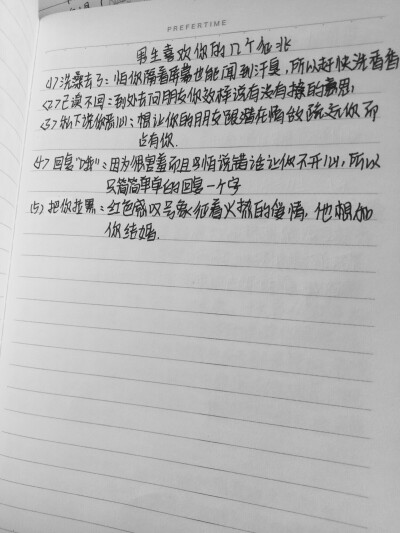 PREFERTIME
男生喜欢你的几个征兆
<1>洗澡去了：怕你隔着屏幕也能闻到汗臭，所以赶快洗香香
<2>已读不回：到处去问朋友你这样说有没有撩的意思
<3>私下说你恶心：想让你的朋友跟潜在情敌疏远你而
占有你.
<4>回复"哦"：因为很害羞而且又怕说错话让你不开心，所以
只简简单单的回复一个字
<5>把你拉黑：红色感叹号象征着火热的爱情，他想和
你结婚.